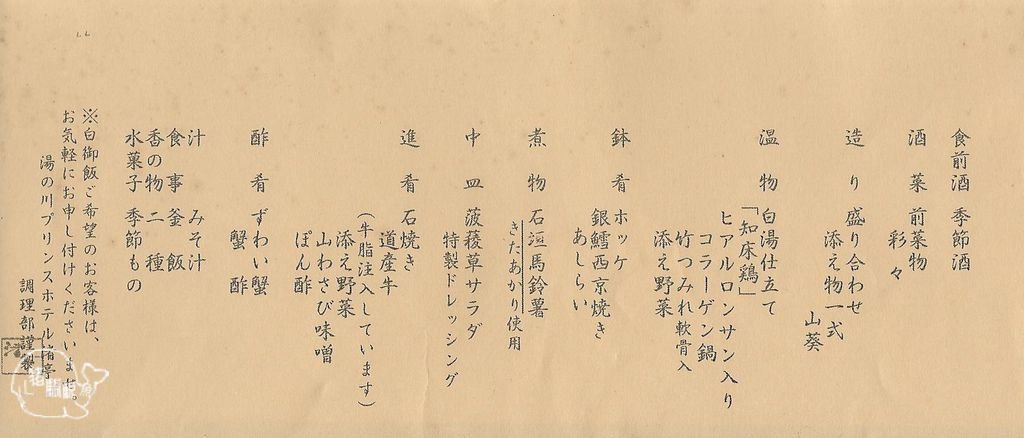 食前酒 季節酒
酒菜 前菜物
彩々
造り 盛り合わせ
添え物一式
山葵
温物 白湯仕立て
「知床鶏」
ヒアルロンサン入り
コラーゲン鍋
竹つみれ軟骨入
添え野菜
鉢肴 ホッケ
銀鱈西京焼き
あしらい
煮物 石垣馬鈴薯
きたあかり使用
中皿 菠薐草サラダ
特製ドレッシング
進肴 石焼き
道産牛
(牛脂注入しています)
添え野菜
山わさび味噌
ぽん酢
酢肴 ずわい蟹
蟹酢
汁 みそ汁
食事 釜飯
香の物 二種
水菓子 季節もの
※白御飯ご希望のお客様は、
お気軽にお申し付けくださいます。
湯の川プリンスホテル渚亭
調理部謹製